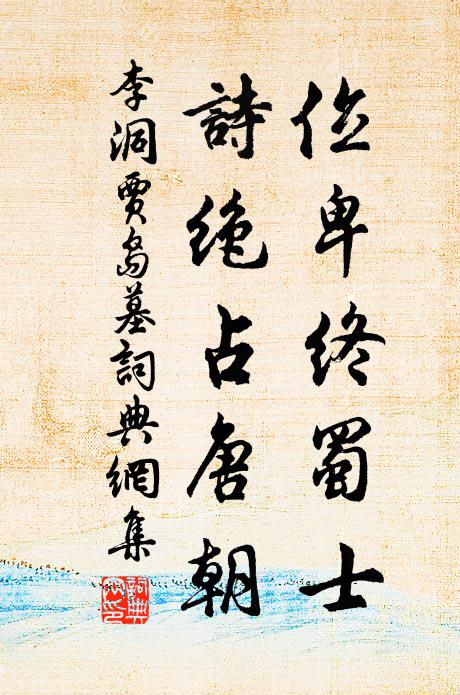 位卑終蜀士
詩絶占唐朝
李洞賈島墓詞典網集